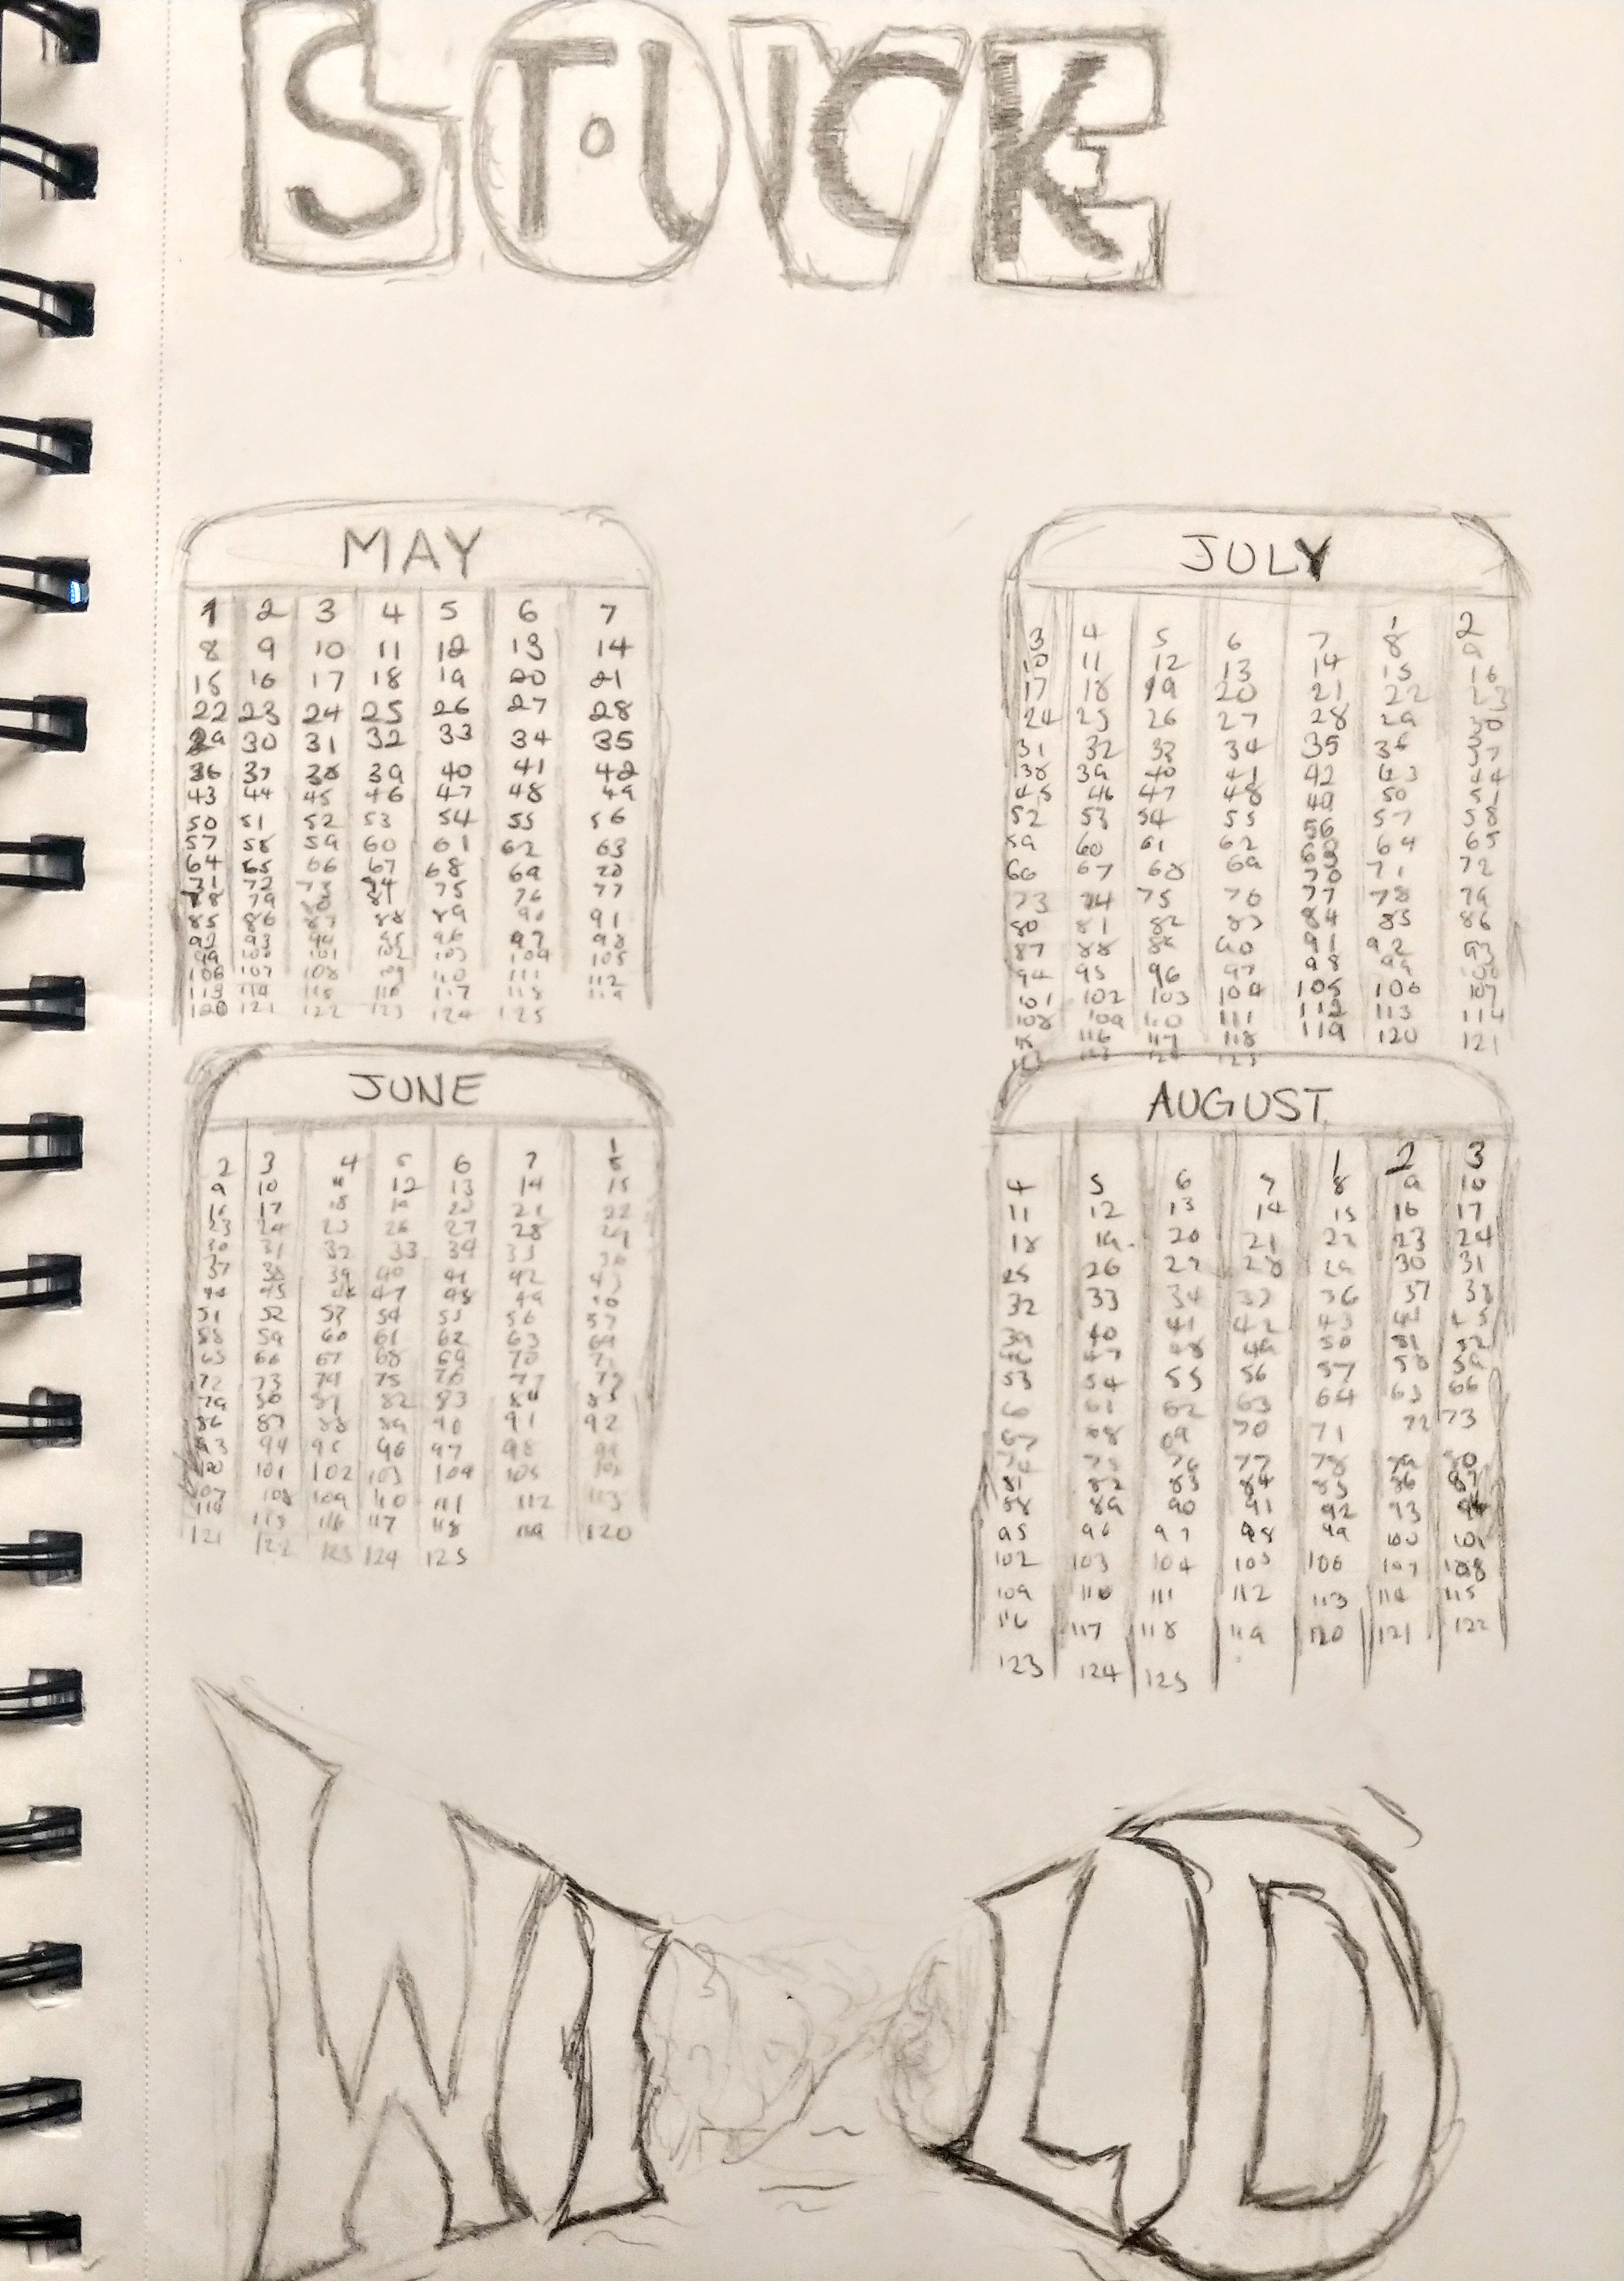 STUCK
MAY
1 2 3 4 5 6 7
8 9 10 11 12 13 14
15 16 17 18 19 20 21
22 23 24 25 26 27 28
29 30 31 32 33 34 35
36 37 38 39 40 41 42
43 44 45 46 47 48 49
50 51 52 53 54 55 56
57 58 59 60 61 62 63
64 65 66 67 68 69 70
71 72 73 74 75 76 77
78 79 80 81
85 86 87 88 89 90 91
92 93 94 95 96 97 98
99 100 101 102 103 104 105
106 107 108 109 110 111 112
113 114 115 116 117 118 119
120 121 122 123 124 125
JUNE
1
2 3 4 5 6 7 8
9 10 11 12 13 14 15
16 17 18 19 20 21 22
23 24 25 26 27 28 29
30 31 32 33 34 35 36
37 38 39 40 41 42 43
44 45 46 47 48 49 50
51 52 53 54 55 56 57
58 59 60 61 62 63 64
65 66 67 68 69 70 71
72 73 74 75 76 77 78
79 80 81 82 83 84 85
86 87 88 89 90 91 92
93 94 95 96 97 98 99
100 101 102 103 104 105 106
107 108 109 110 111 112 113
114 115 116 117 118 119 120
121 122 123 124 125
JULY
1 2
3 4 5 6 7 8 9
10 11 12 13 14 15 16
17 18 19 20 21 22 23
24 25 26 27 28 29 30
31 32 33 34 35 36 37
38 39 40 41 42 43 44
45 46 47 48 49 50 51
52 53 54 55 56 57 58
59 60 61 62 63 64 65
66 67 68 69 70 71 72
73 74 75 76 77 78 79
80 81 82 83 84 85 86
87 88 89 90 91 92 93
94 95 96 97 98 99 100
101 102 103 104 105 106 107
108 109 110 111 112 113 114
115 116 117 118 119 120 121
122 123 124 125
AUGUST
1 2 3
4 5 6 7 8 9 10
11 12 13 14 15 16 17
18 19 20 21 22 23 24
25 26 27 28 29 30 31
32 33 34 35 36 37 38
39 40 41 42 43 44 45
46 47 48 49 50 51 52
53 54 55 56 57 58 59
60 61 62 63 64 65 66
67 68 69 70 71 72 73
74 75 76 77 78 79 80
81 82 83 84 85 86 87
88 89 90 91 92 93 94
95 96 97 98 99 100 101
102 103 104 105 106 107 108
109 110 111 112 113 114 115
116 117 118 119 120 121 122
123 124 125
WO LD